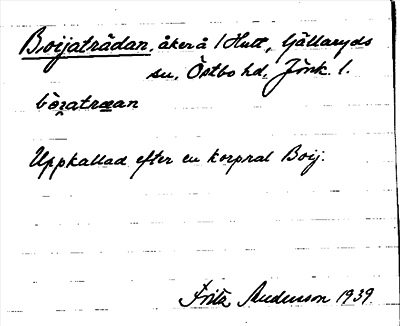 Boijaträdan, åker å 1 Hult, Gällaryds
sn, Östbo hd. Jönk. l.
Uppkallad efter en korpral Boij.
Fritz Andersson 1939.